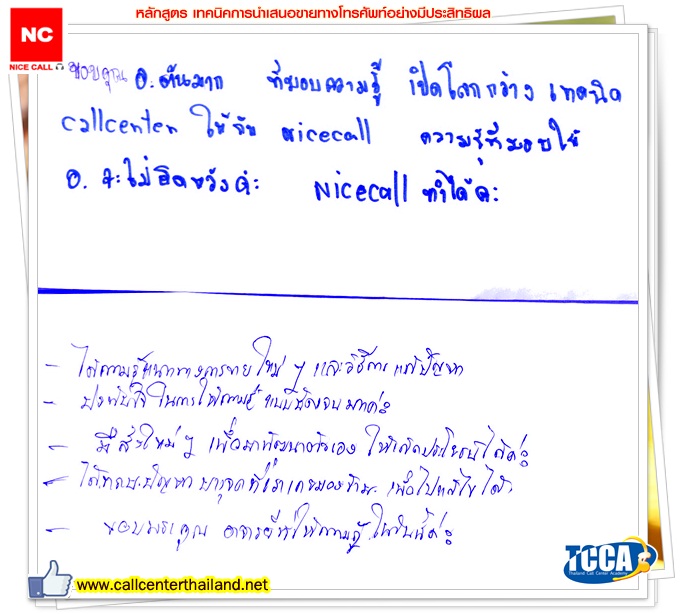 หลักสูตร เทคนิคการนำเสนอขายทางโทรศัพท์อย่างมีประสิทธิผล
NC
NICE CALL
ขอบคุณ อ. ต้นมาก ที่มอบความรู้ เปิดโลกกว้าง เทคนิค
callcenter ให้กับ nicecall ความรู้ที่มอบให้
อ. จะไม่ผิดหวังค่ะ Nicecall ทำได้ค่ะ
- ได้ความรู้แนวทางการขายใหม่ ๆ และวิธีการแก้ปัญหา
- ประทับใจในการให้ความรู้ มากค่ะ
- มีสิ่งใหม่ ๆ เพื่อมาพัฒนาตัวเอง ให้เกิดประโยชน์ได้ค่ะ
- ได้ ปัญหา บางจุดที่เราเคยมองข้าม เพื่อไปแก้ไขได้
- ขอบพระคุณ อาจารย์ที่ให้ความรู้ในวันนี้ค่ะ
www.callcenterthailand.net
TCCA
Thailand Call Center Academy